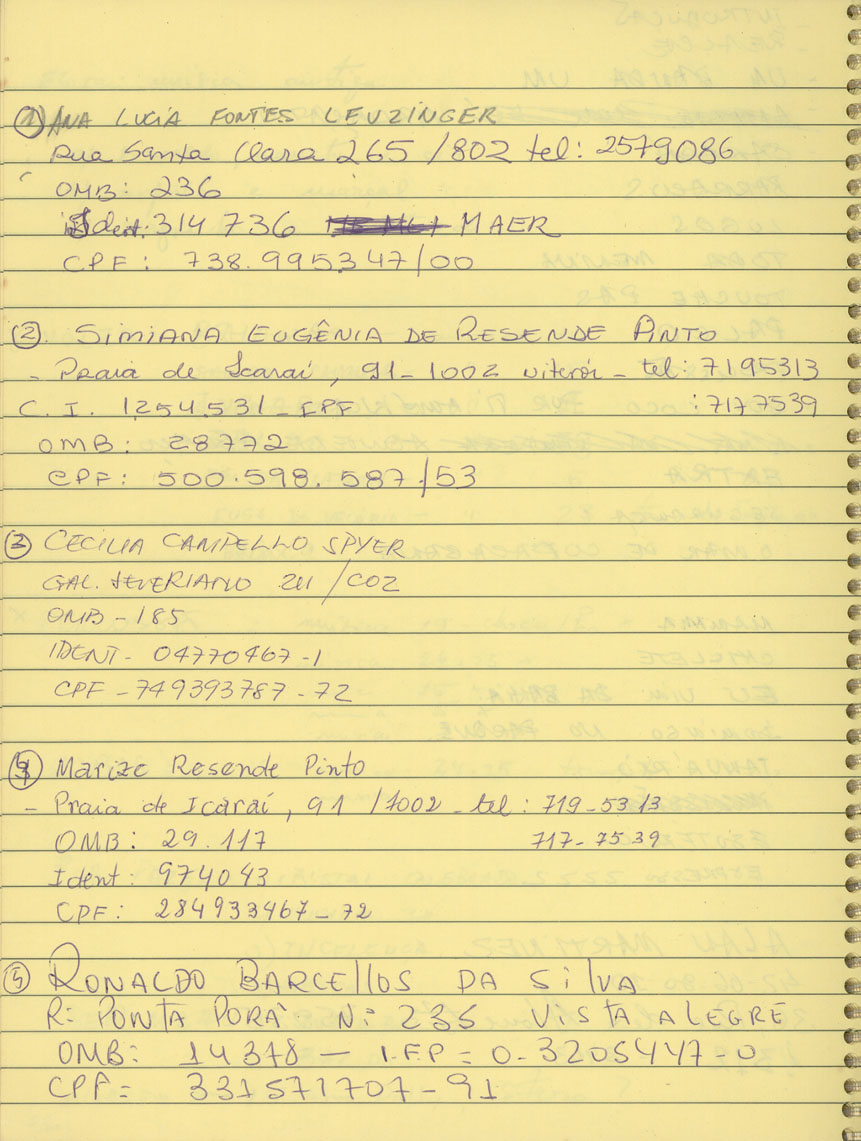 ① ANA LUCIA FONTES LEUZINGER
Rua Santa Clara 265 /802 tel: 2579086
OMB: 236
Ident: 314 736 MAER
CPF: 738.995347/00
②. SIMIANA EUGÊNIA DE RESENDE PINTO
- Praia de Icaraí, 91-1002 niterói - tel: 7195313
C. I. 1254.531- IPF :7177539
OMB: 28772
CPF: 500.598.587/53
③ CECILIA CAMPELLO SPYER
GAL. SEVERIANO 211 /CO2
OMB - 185
IDENT- 04770467-1
CPF - 749393787-72
④ Marize Resende Pinto
- Praia de Icaraí, 91 /1002 - tel: 719-5313
OMB: 29.117 717-7539
Ident: 974043
CPF: 284933467-72
⑤ RONALDO BARCELLOS DA SILVA
R: PONTA PORÃ N: 235 VISTA ALEGRE
OMB: 14378 - I.F.P = 0-3205447-0
CPF= 331571707-91